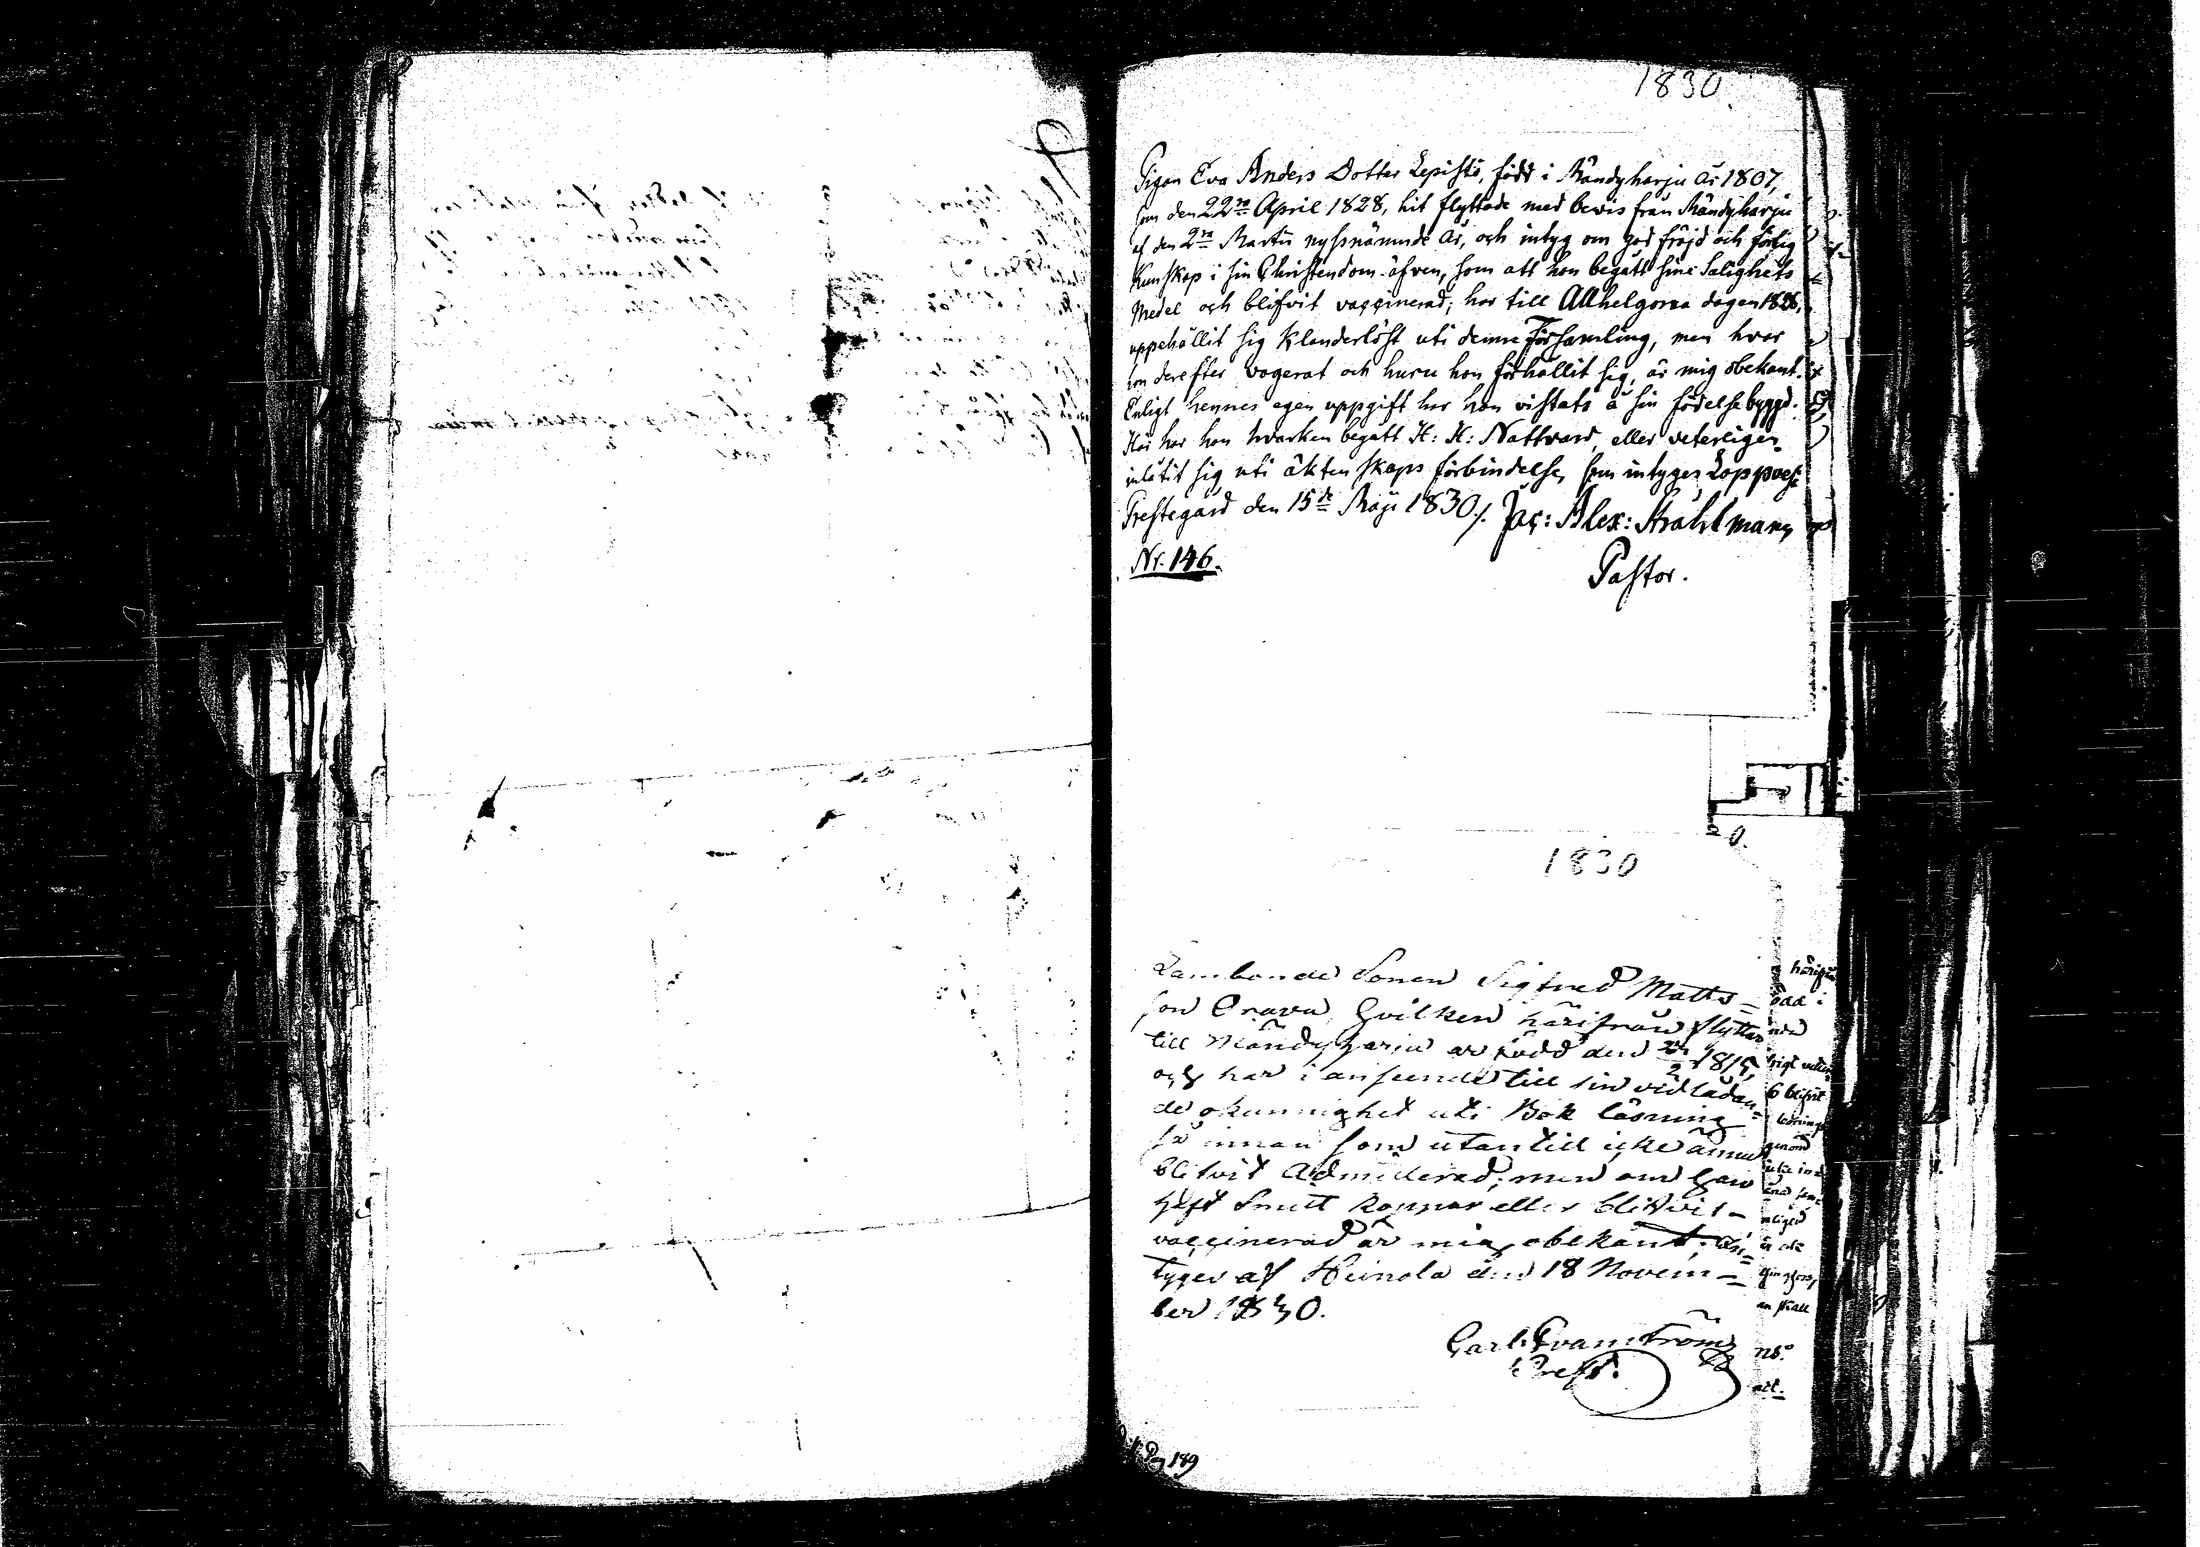 1830.
Pigan Eva Anders Dotter Lepistö, född i Mändyharju år 1807,
som den 22ra April 1828, hit flyttade med bevis från Mändyharju
af den 2ra Martii nyssnämnde år, och intyg om god fräjd och försvarlig
Kunskap i sin Christendom äfven, som att hon begått sine Salighets
Medel och blifvit vaccinerad; har till Allhelgona dagen 1828,
uppehållit sig klanderlöst uti denne Församling, men hvar
hon derefter vagerat och huru hon förhållit sig, är mig obekant.
Enligt hennes egen uppgift har hon vistats å sin födelsebygd.
Här har hon hvarken begått H: H: Nattvard, eller veterligen
inlåtit sig uti äktenskaps förbindelse, som intygar Loppvesi
Prestegård den 15de Maji 1830 /. Jac: Alex: Strahlman,
Nr. 146.
Pastor.
1830
Lambonde Sonen Sigfred Matts-
son Orava, hvilken härifrån flyttar
till Mändyharju är född den 1815,
och har i anseende till sin vidlådan-
de okunnighet uti Bok läsning
så innan som utantill icke ännu
blifvit Admitterad; men om han
haft Smitt koppor eller blifvit
vaccinerad är mig obekant; In-
tygar af Heinola den 18 Novem-
ber 1830.
Carl Avanström
Past.
Pag 189